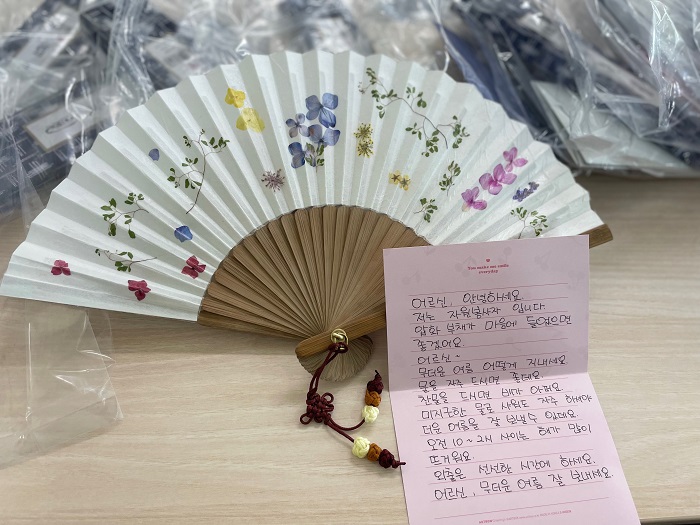 You make me smile
everyday
어르신, 안녕하세요.
저는 자원봉사자 입니다.
압화 부채가 마음에 들었으면
좋겠어요.
어르신~
무더운 여름 어떻게 지내세요
물을 자주 드시면 좋데요.
찬물을 드시면 배가 아파요
미지근한 물로 샤워도 자주 하셔야
더운 여름을 잘 보낼수 있데요.
오전 10~2시 사이는 해가 많이
뜨거워요
외출은 선선한 시간에 하세요.
어르신, 무더운 여름 잘 보내세요